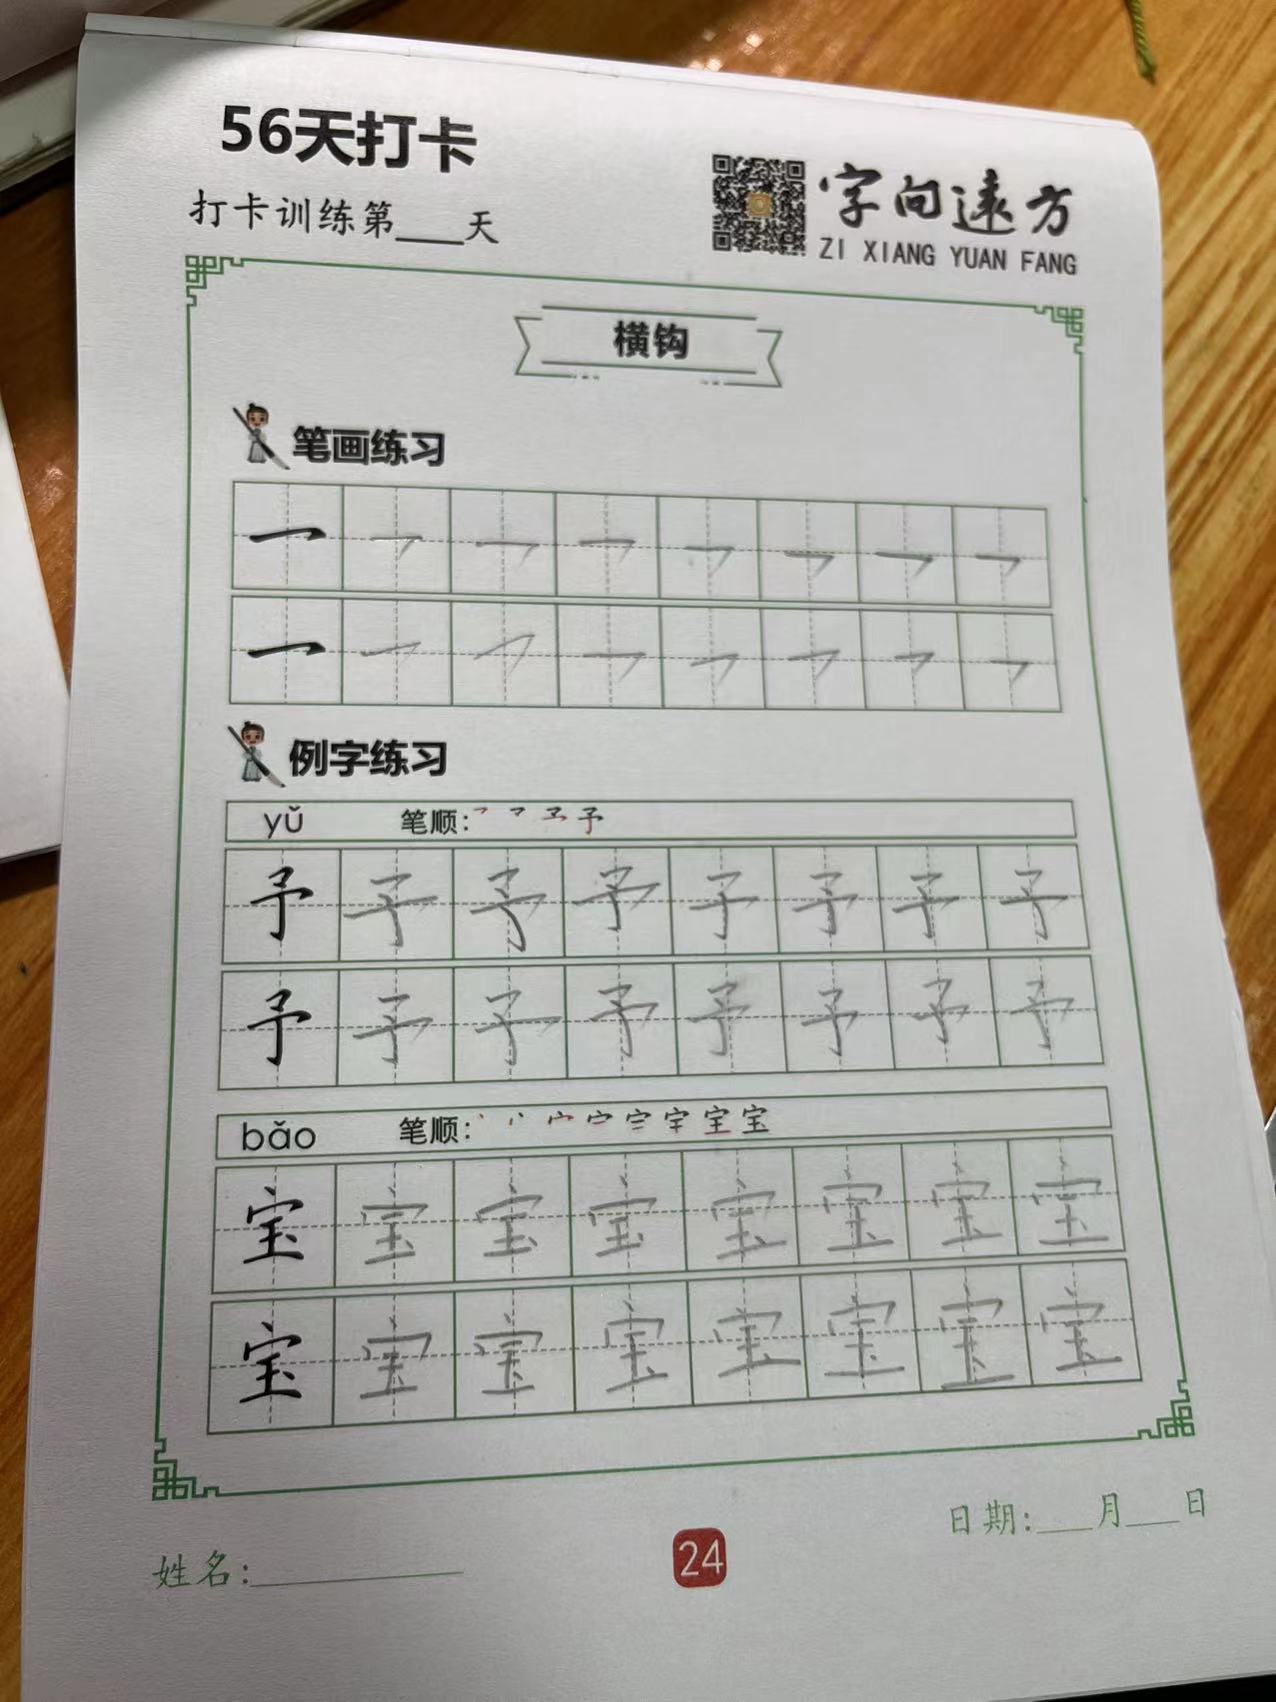 56天打卡
打卡训练第___天
字向遠方
ZI XIANG YUAN FANG
横钩
笔画练习
例字练习
yǔ 笔顺：
予 予 予 予 予 予 予 予
予 予 予 予 予 予 予 予
bǎo 笔顺：
宝 宝 宝 宝 宝 宝 宝 宝
宝 宝 宝 宝 宝 宝 宝 宝
日期：___月___日
姓名：___________
24